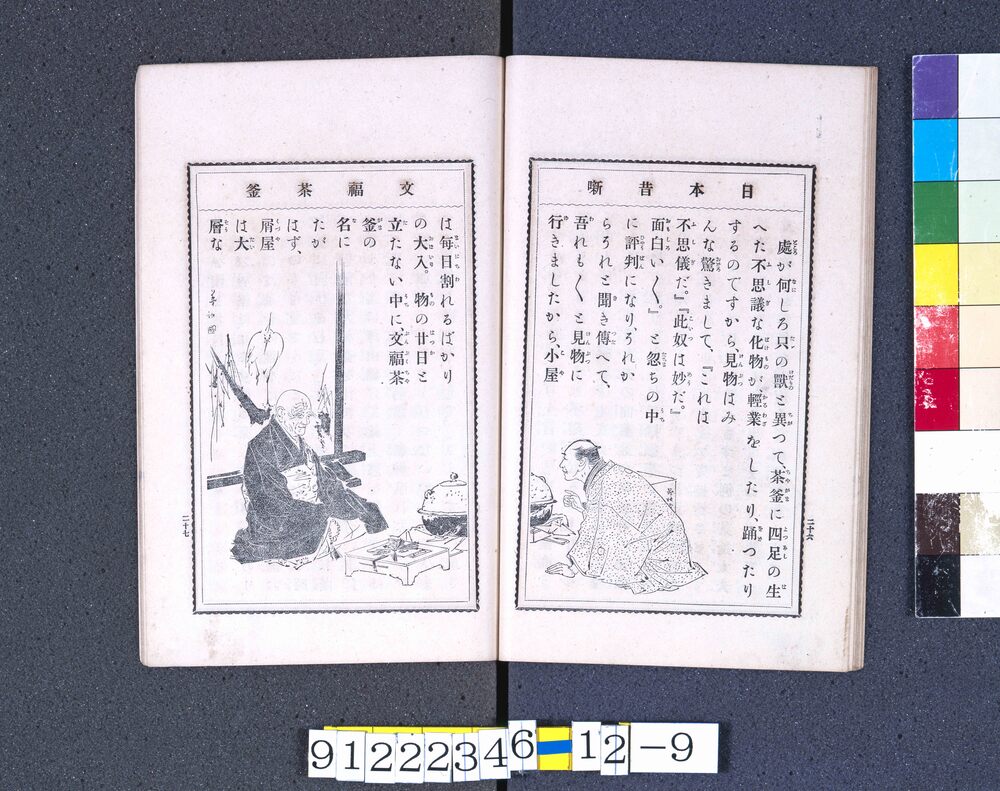 日本昔噺
處が何しろ只の獸と異つて、茶釜に四足の生
へた不思議な化物が、輕業をしたり、踊つたり
するのですから、見物はみ
んな驚きまして、『これは
不思儀だ。』『此奴は妙だ。』
面白い〱。』と忽ちの中
に評判になり、それか
らそれと聞き傳へて、
吾れも〱と見物に
行きましたから、小屋
二十六
文福茶釜
は毎日割れるばかり
の大入。物の廿日と
立たない中に、文福茶
釜の
名に
たが
はず、
屑屋
は大
層な
二十七
91222346 12-9